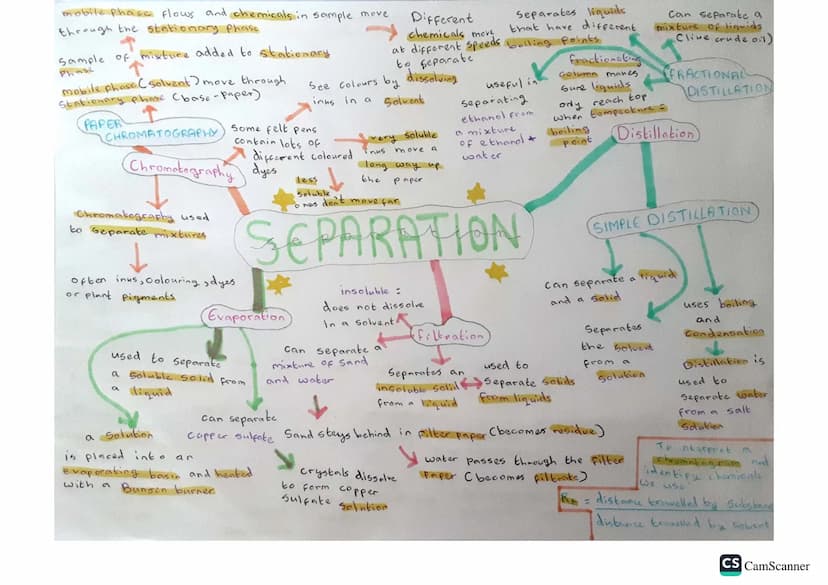 mobile phase flows and chemicals in sample move
through the stationary phase
sample of mixture added to stationary
phase
mobile phase (solvent) move through
stationary phase (base-paper)
PAPER
CHROMATOGRAPHY
Chromatography
Chromatography used
to separate mixtures
often inks, colouring, dyes
or plant pigments
See colours by dissolving
inks in a solvent
Some felt pens
contain lots of
different coloured
dyes
very soluble
inks move a
long way up
the paper
less
soluble
ones don't move far
Different
chemicals move
at different speeds
to separate
separates liquids
that have different
boiling points
Can separate a
mixture of liquids
(like crude oil)
FRACTIONAL
DISTILLATION
fractionating
column makes
sure liquids
only reach top
when temperature =
boiling
point
useful in
separating
ethanol from
a mixture
of ethanol +
water
Distillation
SIMPLE DISTILLATION
can separate a liquid
and a solid
Separates
the solvent
from a
solution
uses boiling
and
condensation
Distillation is
used to
separate water
from a salt
solution
SEPARATION
Separation
Evaporation
used to separate
a soluble solid from
a liquid
a solution
is placed into an
evaporating basin and heated
with a Bunsen burner
can separate
copper sulfate
crystals dissolve
to form copper
sulfate solution
insoluble :
does not dissolve
in a solvent
Filtration
can separate a
mixture of sand
and water
Separates an
insoluble solid
from a liquid
used to
separate solids
from liquids
Sand stays behind in filter paper (becomes residue)
water passes through the filter
paper (becomes filtrate)
To interpret a
chromatogram and
identify chemicals
we use
RF = distance travelled by substance
distance travelled by solvent
CS CamScanner